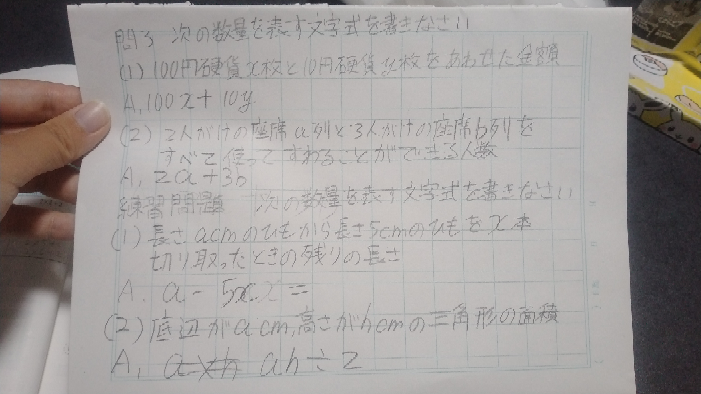 問3 次の数量を表す文字式を書きなさい
(1) 100円硬貨x枚と10円硬貨y枚をあわせた金額
A. 100x+10y
(2) 2人がけの座席a列と3人がけの座席b列を
すべて使ってすわることができる人数
A, 2a+3b
練習問題 次の数量を表す文字式を書きなさい
(1) 長さacmのひもから長さ5cmのひもをx本
切り取ったときの残りの長さ
A. a-5x =
(2) 底辺がacm,高さがhcmの三角形の面積
A, ah÷2